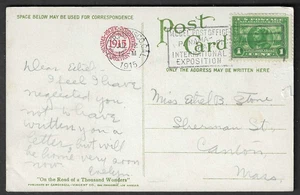 SPACE BELOW MAY BE USED FOR CORRESPONDENCE
Post Card
1915
1915
POST OFFICE
INTERNATIONAL
EXPOSITION
ONLY THE ADDRESS MAY BE WRITTEN HERE
1
Dear Ethel
I feel I have
neglected you
not to have
written you a
letter, but will
be home very soon
now
Evelyn
Miss Ethel B. Stone
Sherman St.
Canton
Mass.
"On the Road of a Thousand Wonders"